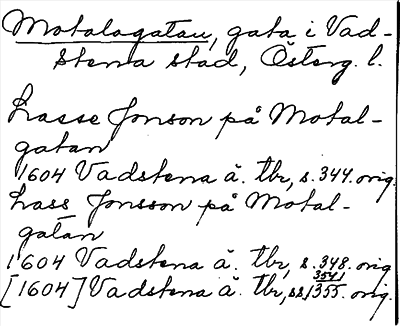 Motalagatan, gata i Vad-
stena stad, Österg. l.
Lasse Jonson på Motal-
gatan
1604 Vadstena ä. tbr, s. 344. orig.
Lass Jonsson på Motal-
gatan
1604 Vadstena ä. tbr, s. 348. orig
354
[1604] Vadstena ä. tbr, ss. 355. orig.